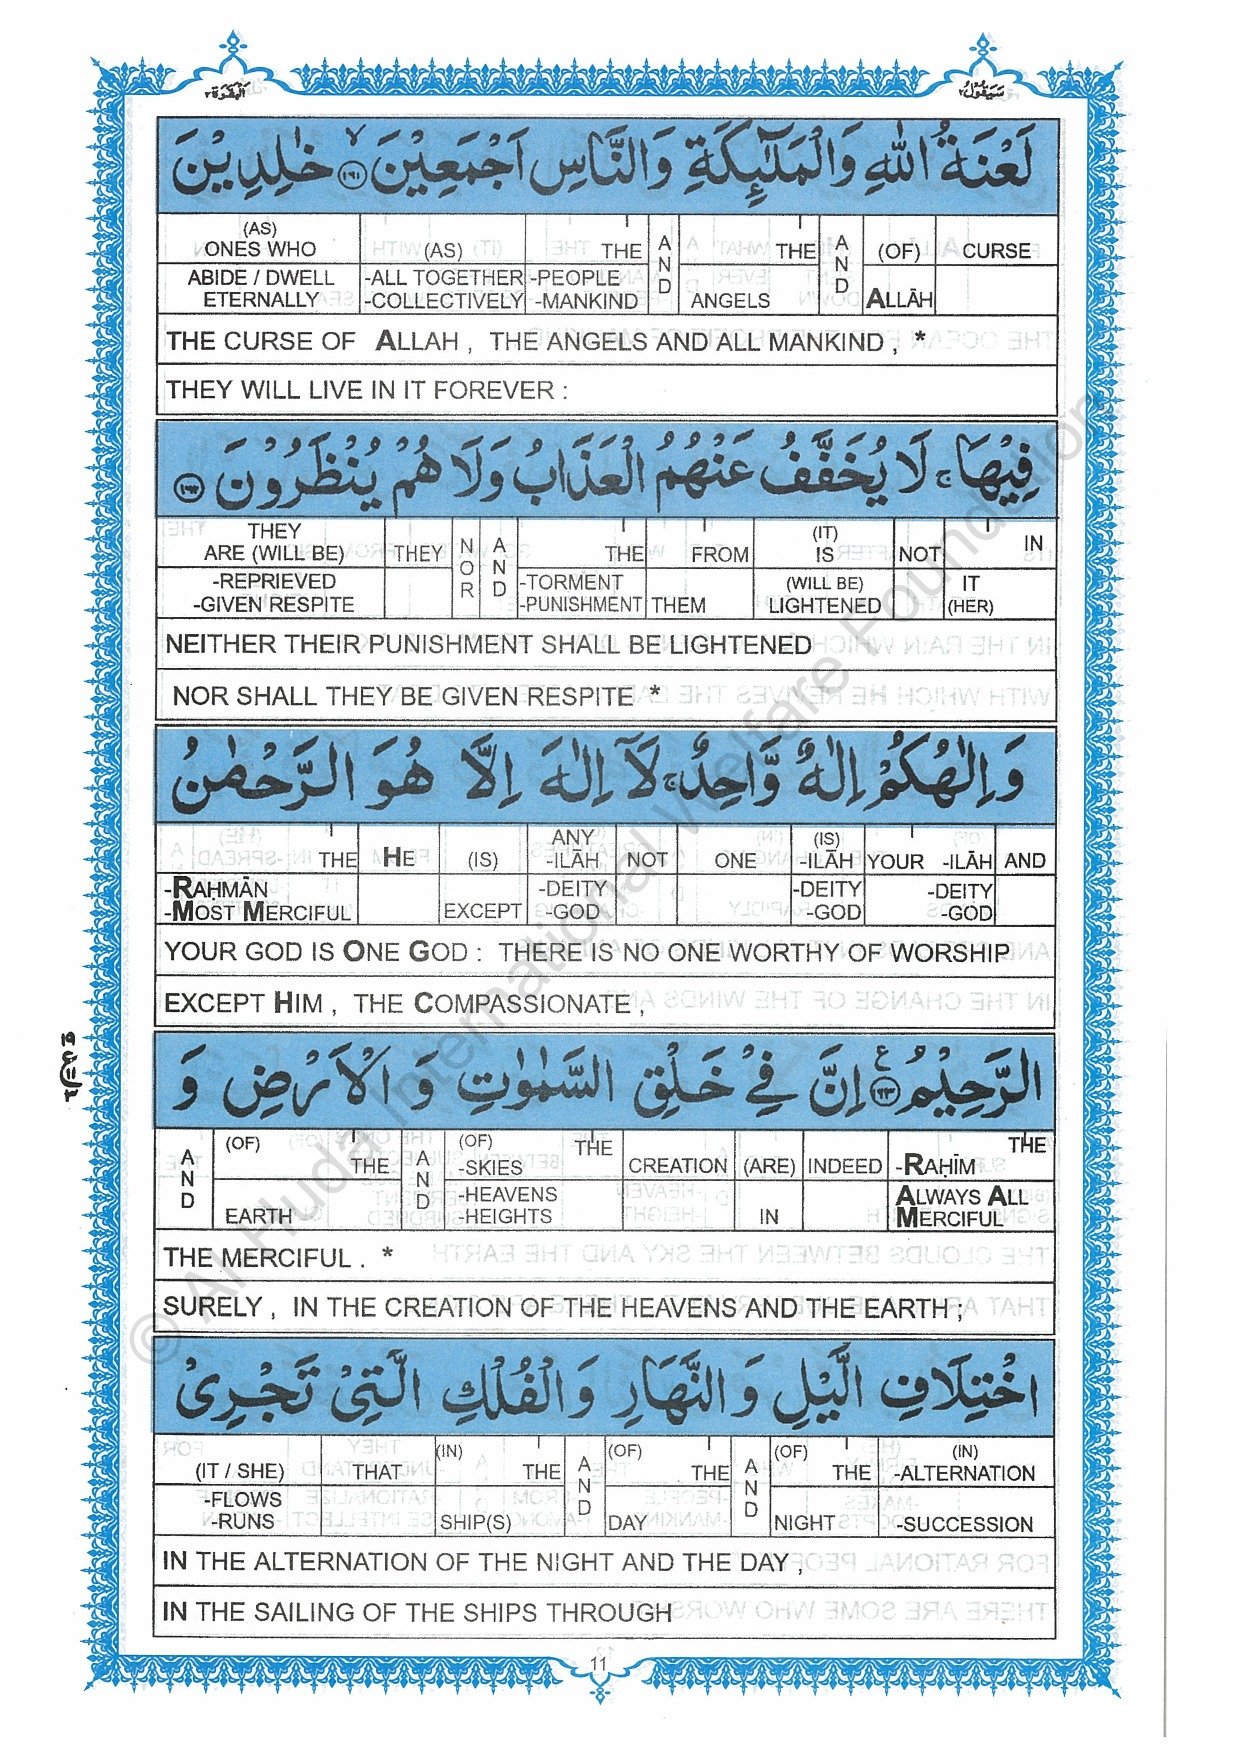 البقرة ٢
سيقول ٢
لَعْنَةُ اللّٰهِ وَالْمَلٰٓئِكَةِ وَالنَّاسِ اَجْمَعِيْنَ ۙ ١٦١ خٰلِدِيْنَ
(AS) ONES WHO (AS) THE AND THE AND (OF) CURSE
ABIDE / DWELL ETERNALLY -ALL TOGETHER -COLLECTIVELY -PEOPLE -MANKIND ANGELS ALLĀH
THE CURSE OF ALLAH , THE ANGELS AND ALL MANKIND , *
THEY WILL LIVE IN IT FOREVER :
فِيْهَا ۚ لَا يُخَفَّفُ عَنْهُمُ الْعَذَابُ وَلَا هُمْ يُنْظَرُوْنَ ١٦٢
THEY ARE (WILL BE) THEY NOR AND THE FROM (IT) IS NOT IN
-REPRIEVED -GIVEN RESPITE -TORMENT -PUNISHMENT THEM (WILL BE) LIGHTENED IT (HER)
NEITHER THEIR PUNISHMENT SHALL BE LIGHTENED
NOR SHALL THEY BE GIVEN RESPITE *
وَاِلٰهُكُمْ اِلٰهٌ وَّاحِدٌ ۚ لَآ اِلٰهَ اِلَّا هُوَ الرَّحْمٰنُ
THE HE (IS) ANY -ILĀH NOT ONE (IS) -ILĀH YOUR -ILĀH AND
-RAḤMĀN -MOST MERCIFUL EXCEPT -DEITY -GOD -DEITY -GOD -DEITY -GOD
YOUR GOD IS ONE GOD : THERE IS NO ONE WORTHY OF WORSHIP
EXCEPT HIM , THE COMPASSIONATE ,
الرَّحِيْمُ ١٦٣ ع اِنَّ فِيْ خَلْقِ السَّمٰوٰتِ وَ الْاَرْضِ وَ
AND (OF) THE AND (OF) -SKIES THE CREATION (ARE) INDEED THE -RAḤĪM
EARTH -HEAVENS -HEIGHTS IN ALWAYS ALL MERCIFUL
THE MERCIFUL . *
SURELY , IN THE CREATION OF THE HEAVENS AND THE EARTH ;
اخْتِلَافِ الَّيْلِ وَ النَّهَارِ وَ الْفُلْكِ الَّتِيْ تَجْرِيْ
(IT / SHE) THAT (IN) THE AND (OF) THE AND (OF) THE (IN) -ALTERNATION
-FLOWS -RUNS SHIP(S) DAY NIGHT -SUCCESSION
IN THE ALTERNATION OF THE NIGHT AND THE DAY ,
IN THE SAILING OF THE SHIPS THROUGH
11
© Al Huda International Welfare Foundation